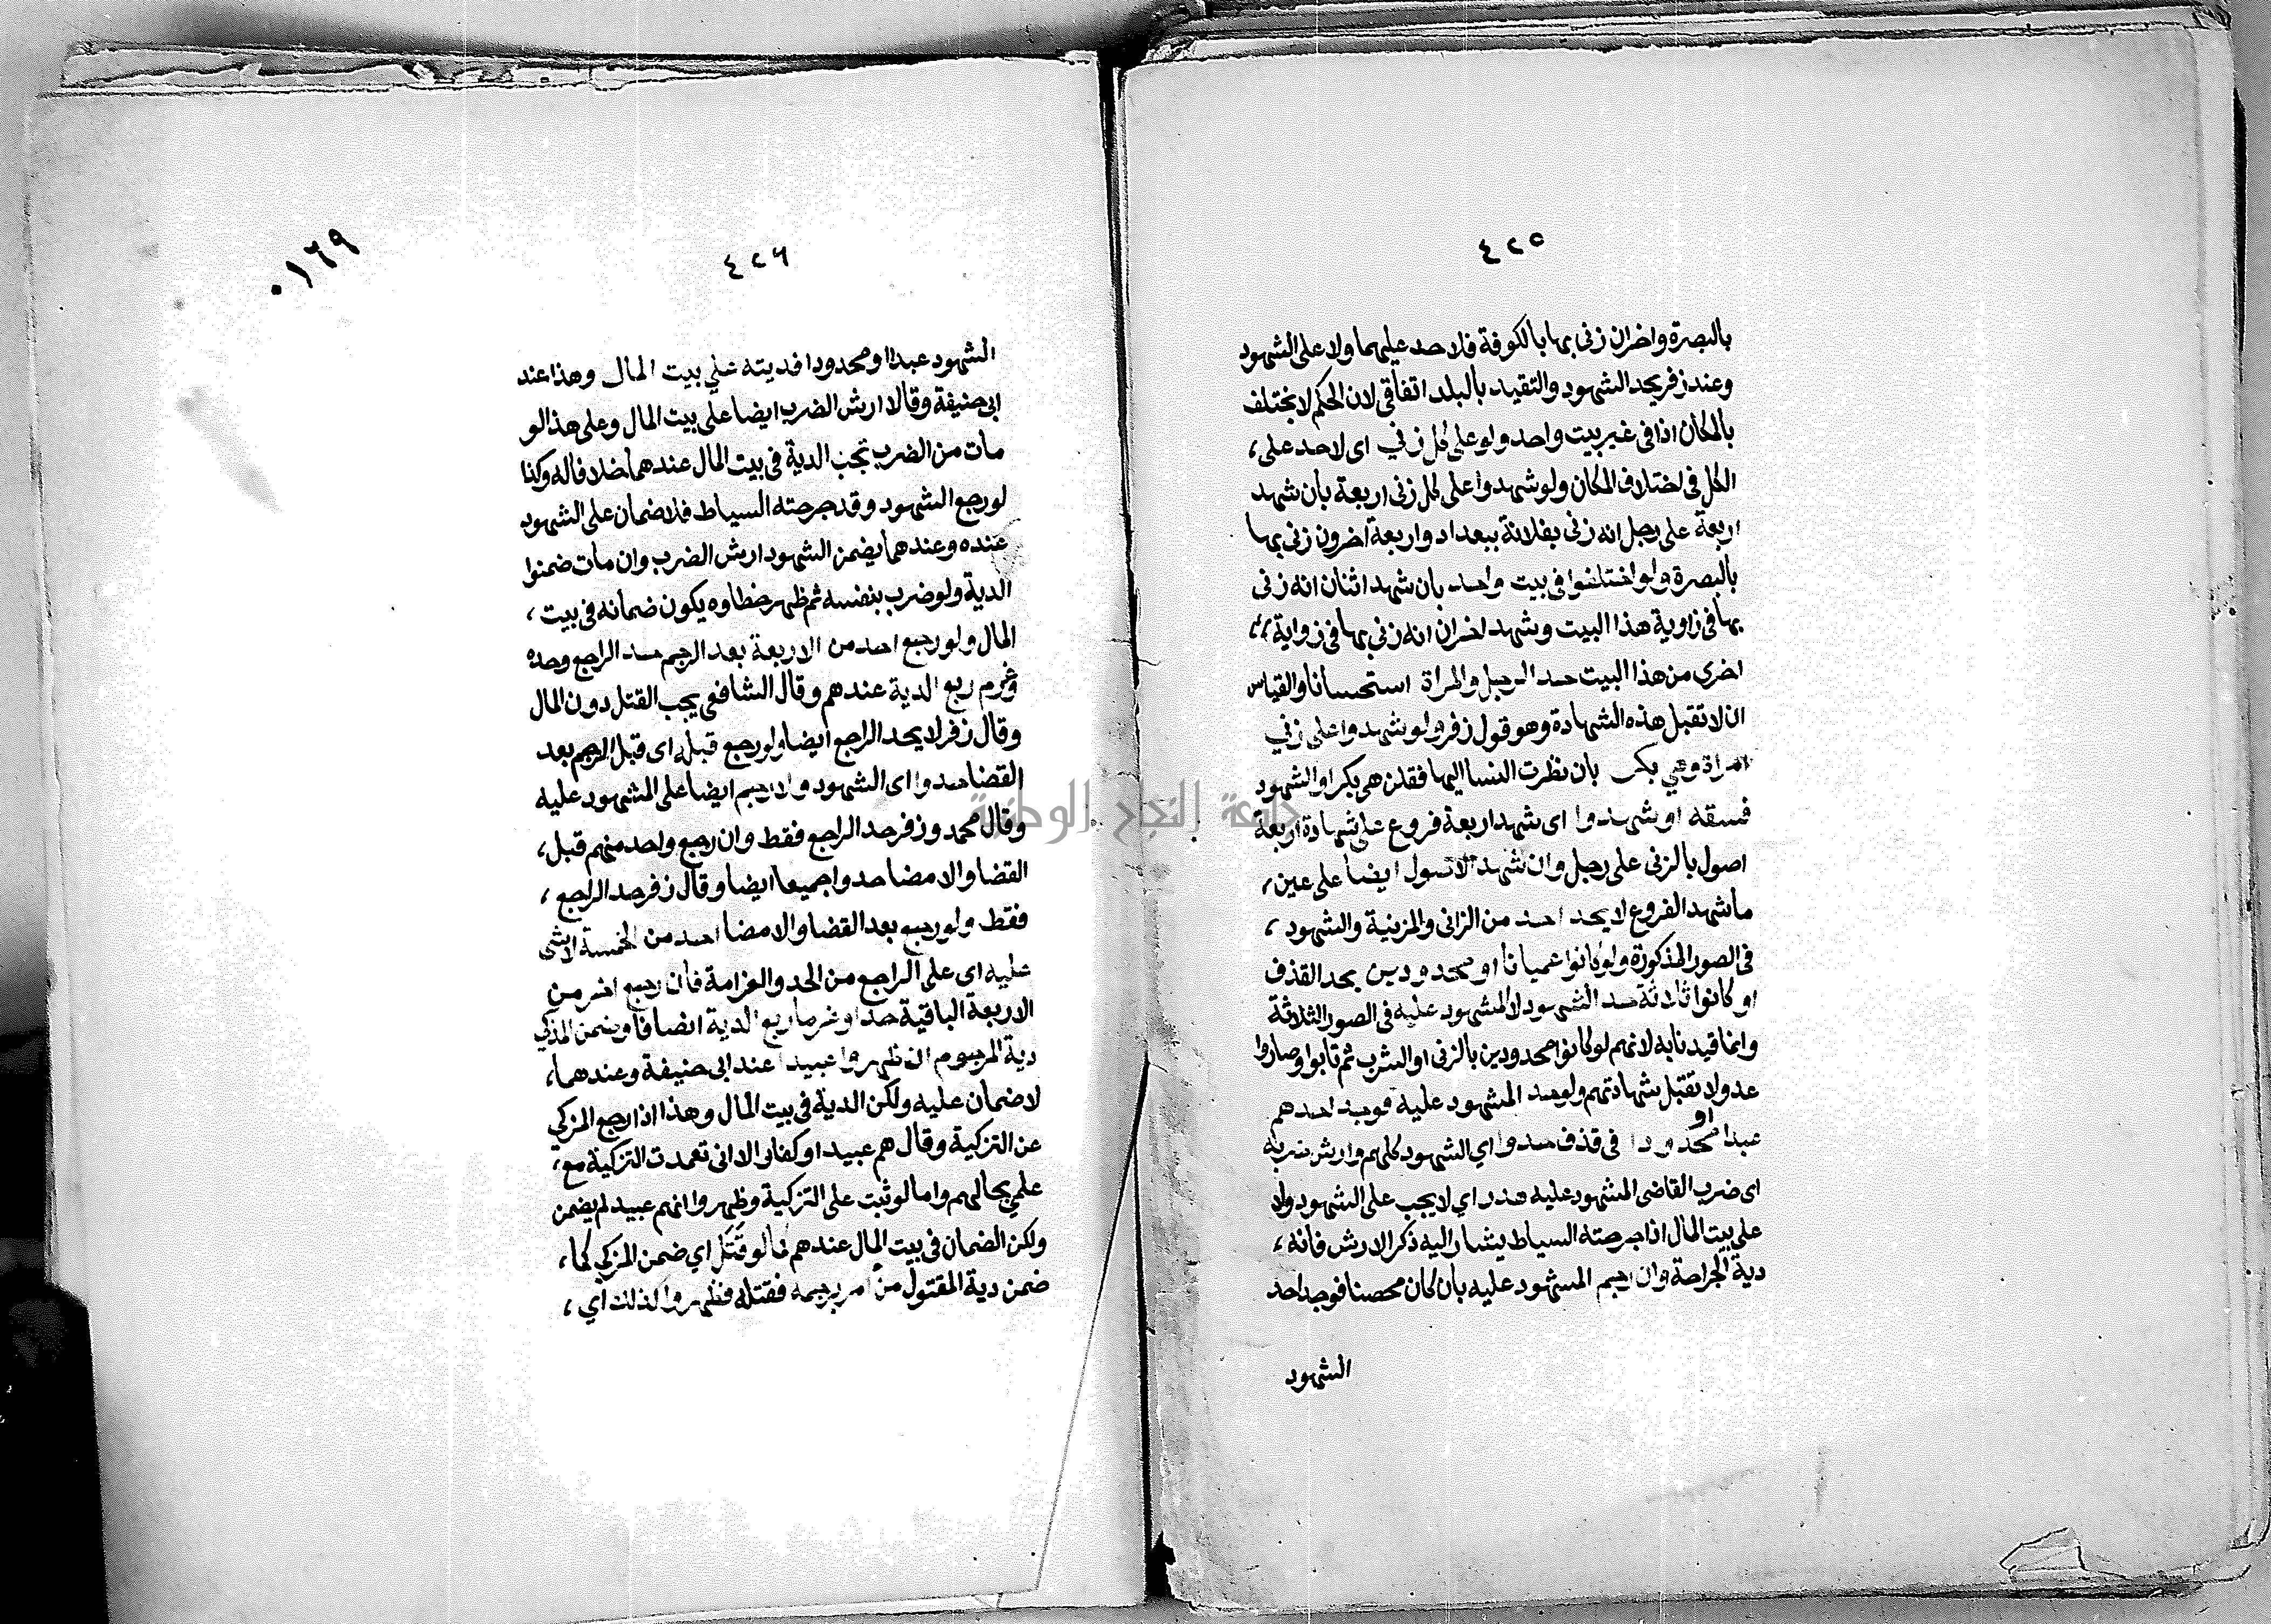 ٤٢٥
بالبصرة واخران زنى بها بالكوفة فلاحد عليهما ولا على الشهود
وعند زفر يحد الشهود والتقيد بالبلد اتفاقي لان الحكم لا يختلف
بالمكان اذا في غير بيت واحد ولو على كل زني اى لاحد على،
الكل في اختلاف المكان ولو شهدوا على كل زنى اربعة بأن شهد
اربعة على رجل انه زنى بفلانة ببغداد واربعة اخرون زنى بها
بالبصرة ولو اختلفوا في بيت واحد بان شهد اثنان انه زنى
بها في زاوية هذا البيت وشهد اخران انه زنى بها في زواية،،
اخرى من هذا البيت حد الرجل والمراة استحسانا والقياس
ان لا تقبل هذه الشهادة وهو قول زفر ولو شهدوا على زني
امراة وهي بكر بان نظرت النسا اليها فقلن هي بكر او الشهود
فسقه او شهدوا اى شهد اربعة فروع على شهادة اربعة
اصول بالزنى على رجل وان شهد الاصول ايضا على عين،
ما شهد الفروع لا يحد احد من الزانى والمزنية والشهود،
في الصور المذكورة ولو كانوا عميانا او محدودين بحد القذف
او كانوا ثلاثة حد الشهود لا المشهود عليه في الصور الثلاثة
وانما قيدنا به لانهم لو كانوا محدودين بالزنى او الشرب ثم تابوا وصاروا
عدولا تقبل شهادتهم ولو حد المشهود عليه فوجد احدهم
عبدا او محدودا في قذف حدوا اي الشهود كلهم وارش ضربه
اى ضرب القاضى المشهود عليه هدر اي لا يجب على الشهود ولا
على بيت المال اذا جرحته السياط يشار اليه ذكر الارش فانه،
دية الجراحة وان رجم المشهود عليه بأن كان محصنا فوجد احد
الشهود
٤٢٦
٠١٦٩
الشهود عبدا او محدودا فديته علي بيت المال وهذا عند
ابى حنيفة وقالا ارش الضرب ايضا على بيت المال وعلى هذا لو
مات من الضرب تجب الدية في بيت المال عندهما خلافا له وكذا
لو رجع الشهود وقد جرحته السياط فلا ضمان على الشهود
عنده وعندهما يضمن الشهود ارش الضرب وان مات ضمنوا
الدية ولو ضرب بنفسه ثم ظهر خطاوه يكون ضمانه في بيت،
المال ولو رجع احد من الاربعة بعد الرجم حد الراجع وحده
وغرم ربع الدية عندهم وقال الشافعي يجب القتل دون المال
وقال زفر لا يحد الراجع ايضا ولو رجع قبله اى قبل الرجم بعد
القضا حدوا اى الشهود ولا رجم ايضا على المشهود عليه
وقال محمد وزفر حد الراجع فقط وان رجع واحد منهم قبل،
القضا والامضا حدوا جميعا ايضا وقال زفر حد الراجع،
فقط ولو رجع بعد القضا والامضا احد من الخمسة لا شى
عليه اى على الراجع من الحد والغرامة فان رجع اخر من
الاربعة الباقية حدا وغرما ربع الدية انصافا وضمن المذكي
دية المرجوم ان ظهروا عبيدا عند ابى حنيفة وعندهما،
لا ضمان عليه ولكن الدية في بيت المال وهذا اذا رجع المزكي
عن التزكية وقال هم عبيد او كفار الا انى تعمدت التزكية مع،
علمي بحالهم واما لو ثبت على التزكية وظهروا انهم عبيد لم يضمن
ولكن الضمان في بيت المال عندهم كما لو قتل اي ضمن المزكي كما،
ضمن دية المقتول من امر برجمه فقتله فظهروا كذلك اي،
جامعة النجاح الوطنية